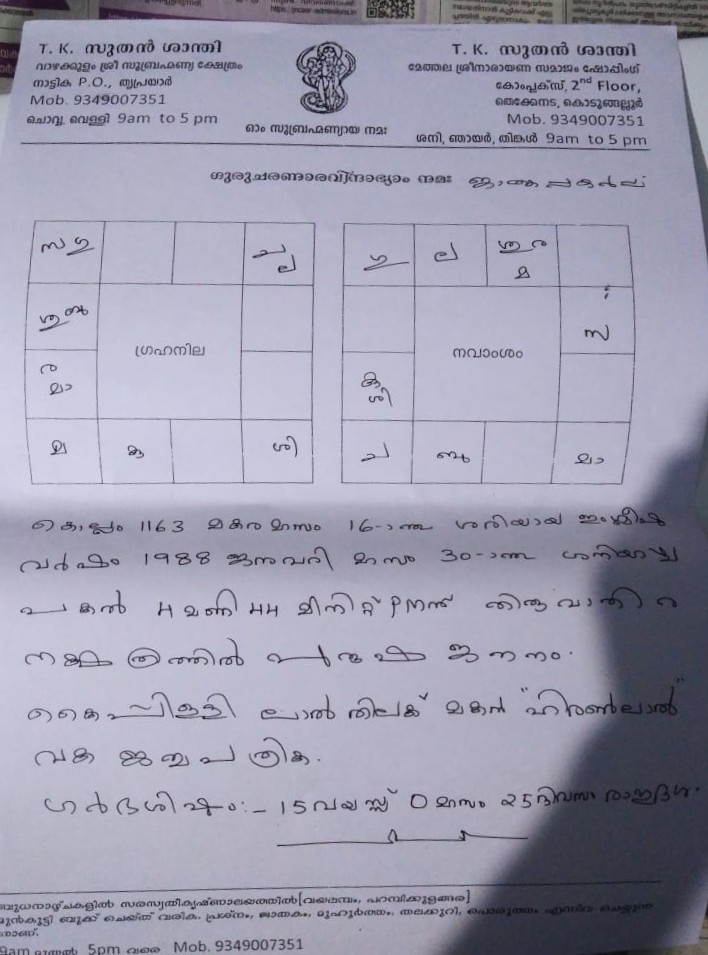 T. K. സുതൻ ശാന്തി
വാഴക്കുളം ശ്രീ സുബ്രഹ്മണ്യ ക്ഷേത്രം
നാട്ടിക P.O., തൃപ്രയാർ
Mob. 9349007351
ചൊവ്വ, വെള്ളി 9am to 5 pm
ഓം സുബ്രഹ്മണ്യായ നമഃ
T. K. സുതൻ ശാന്തി
മേത്തല ശ്രീനാരായണ സമാജം ഷോപ്പിംഗ്
കോംപ്ലക്സ്, 2nd Floor,
തെക്കേനട, കൊടുങ്ങല്ലൂർ
Mob. 9349007351
ശനി, ഞായർ, തിങ്കൾ 9am to 5 pm
ഗുരുചരണാരവിന്ദാഭ്യാം നമഃ
സ ഗു
ച ല
ശു ബു
ഗ്രഹനില
ര മാ
മ
കു
ശി
ഗു
ല
ശു ര മ
സ
നവാംശം
കു ശി
ച
ബു
മാ
കൊല്ലം 1163 മകര മാസം 16-ാം ശരിയായ ഇംഗ്ലീഷ്
വർഷം 1988 ജനുവരി മാസം 30-ാം ശനിയാഴ്ച
പകൽ 4 മണി 44 മിനിറ്റ് PMന് തിരുവാതിര
നക്ഷത്രത്തിൽ പുരുഷ ജനനം.
കൈപ്പിള്ളി ലാൽ തിലക് മകൻ "ഹിരൺലാൽ"
വക ജന്മപത്രിക.
ഗർഭശിഷ്ടം:- 15 വയസ്സ് 0 മാസം 25 ദിവസം രാഹുദശ.
ബുധനാഴ്ചകളിൽ സരസ്വതികൃഷ്ണാലയത്തിൽ
മുൻകൂട്ടി ബുക്ക് ചെയ്ത് വരിക. പ്രശ്നം, ജാതകം, മുഹൂർത്തം, തലക്കുറി, പൊരുത്തം എന്നിവ ചെയ്യുന്ന
താണ്.
9am മുതൽ 5pm വരെ Mob. 9349007351